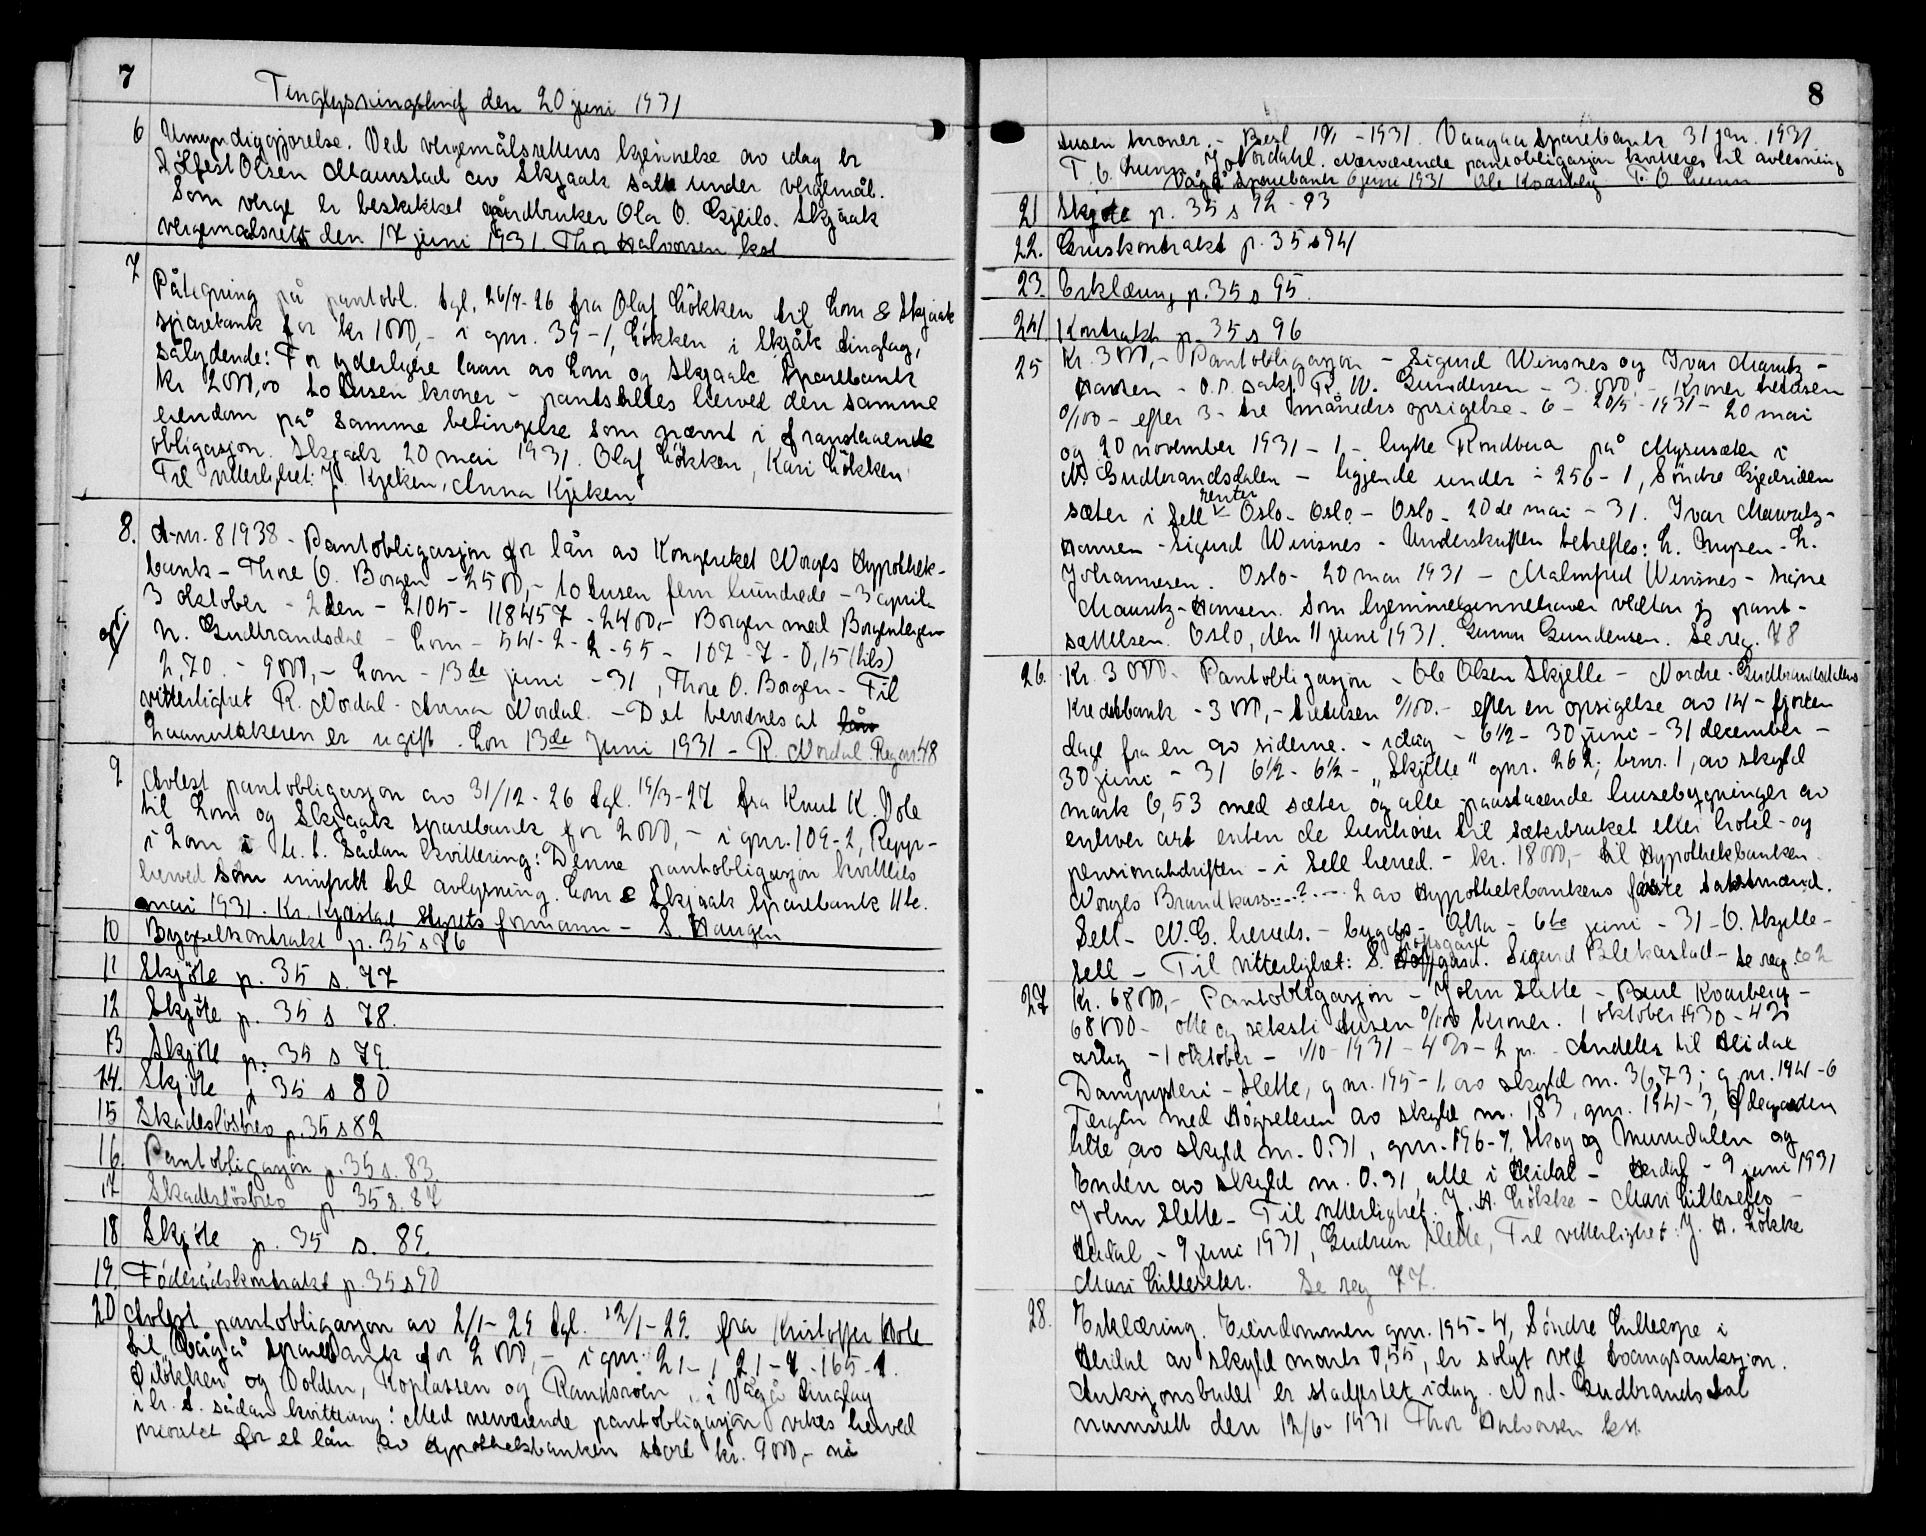 7
Tinglysningsbrief den 20 juni 1931
6 Umyndiggjørelse. Ved vergemålsrettens kjennelse av idag er
Olsen Maurstad av Skjaak satt under vergemål.
Som verge er beskikket gårdbruker Ola O. Skjåk
vergemålsrett den 17 juni 1931 Thor Halvorsen kst
7 Påtegning på pantobl. tgl. 26/7-26 fra Olaf Lökken til Lom & Skjaak
sparebank for kr 1000,- i gnr. 39-1, Lökken i Skjåk tinglag,
sålydende: For yderligere laan av Lom og Skjaak Sparebank
kr 2000,00 to tusen kroner - pantsettes herved den samme
eiendom på samme betingelse som nævnt i franstaaende
obligasjon. Skjaak 20 mai 1931. Olaf Lökken, Kari Lökken
Til vitterlighet: J. Kjeken, Anna Kjeken
8. A-nr. 81938 - Pantobligasjon for lån av Kongeriket Norges Hypothek-
bank - Thore O. Borgen - 2500,- to tusen fem hundrede - 3 april
3 oktober - 2den - 2105 - 118457 - 2400,- Borgen med Borgenhagen
N. Gudbrandsdal - Lom - 54-2 - 2-55 - 102-7 - 0,15 (hls)
2,70. - 9000,- Lom - 13de juni - 31, Thore O. Borgen - Til
vitterlighet R. Nordal - Anna Nordal. - Det bevidnes at lån
Laanetakeren er ugift. Lom 13de Juni 1931 - R. Nordal. Reg. nr. 48
9 Avlest pantobligasjon av 31/12-26 tgl. 14/3-27 fra Knut K. Dole
til Lom og Skjaak sparebank for 2000,- i gnr. 109-2, Repp-
i Lom i h. t. Sådan kvittering: Denne pantobligasjon kvitteres
herved som innfridd til avlysning. Lom & Skjaak Sparebank 11te.
mai 1931. Kr. Kjæstad styrets formann - S. Haugen
10 Bygselkontrakt p. 35 s 76
11 Skjöte p. 35 s. 77
12 Skjöte p. 35 s 78.
13 Skjöte p. 35 s 79.
14. Skjöte p 35 s 80
15 Skadeslösbrev p. 35 s 82
16. Pantobligasjon p. 35 s. 83
17 Skadeslösbrev p 35 s. 87
18 Skjöte p. 35 s. 89.
19. Föderådskontrakt p. 35 s 90
20 Avlest pantobligasjon av 2/1-29 tgl. 12/1-29. fra Kristoffer Hole
til Vågå Sparebank for 2000,- i gnr. 21-1, 21-7-165-1.
og Volden, Koplassen og Randsröen, i Vågå tinglag
i h. t. sådan kvittring: Med nerværende pantobligasjon vikes herved
prioritet for et lån av Hypothekbanken stort kr. 9000,- ni
8
tusen kroner. - Besl 19/1-1931. Vaagaa Sparebank 31 jan. 1931
T. O. Lunn J. Nordahl. Nærværende pantobligasjon kvitteres til avlesning
Vågå Sparebank 6 juni 1931 Ole Kvarberg T. O. Lunn
21 Skjøte p. 35 s 92-93
22. Gruskontrakt p. 35 s 94
23. Erklæring p. 35 s 95.
24 Kontrakt p. 35 s 96
25 Kr. 3000,- Pantobligasjon - Sigurd Winsnes og Ivar Mauritz-
Hansen - o.r. sakf. R. W. Gundersen - 3.000,- Kroner tretusen
0/100 - efter 3-tre måneders opsigelse - 6 - 20/5-1931 - 20 mai
og 20 november 1931 - 1 - hytte Rondbua på Mysusæter i
N. Gudbrandsdalen - liggende under - 256-1, Söndre Gjedsiden
renter
sæter i Sell - Oslo - Oslo - Oslo - 20de mai - 31. Ivar Mauritz-
Hansen - Sigurd Winsnes - Underskriften bekreftes: L. Grupen - L.
Johannesen. Oslo - 20 mai 1931 - Malmfrid Winsnes - Signe
Mauritz-Hansen. Som hjemmelsinnehaver vedtar jeg pant-
settelsen. Oslo, den 11 juni 1931. Gunnar Gundersen. Se reg. 78
26. Kr. 3000 - Pantobligasjon - Ole Olsen Skjelle - Nordre-Gudbrandsdalens
Kreditbank - 3000,- tretusen 0/100. - efter en opsigelse av 14-fjorten
dage fra en av siderne. - idag - 6½ - 30 juni - 31 december -
30 juni - 31 6½ - 6½ - "Skjelle" gnr. 262, brnr. 1, av skyld
mark 6,53 med sæter og alle paastaaende husebygninger av
enhver art enten de henhører til sæterbruket eller hotel- og
pensionatdriften - i Sell herred. - kr. 18000,- til Hypothekbanken
Norges Brandkass.....?.... 2 av Hypothekbankens faste takstmænd.
Sell - N.G. herreds. - bygds - Otta - 6te juni - 31 - O. Skjelle -
Sell - Til vitterlighet: S. Sigurd Blekastad - se reg. 62
27 Kr. 68000,- Pantobligasjon - John Slette - Paul Kvarberg -
68000 - otte og seksti tusen 0/100 kroner. 1 oktober 1930 - 420
årlig - 1 oktober - 1/10-1931 - 420 - 2 pr. - Andeler til Heidal
Dampysteri - Slette, gnr. 195-1, av skyld m. 36,73; gnr. 194-6
med av skyld m. 183, gnr. 194-3, Ödegården
lille av skyld m. 0.31, gnr. 196-7, Skog og Murudalen og
Enden av skyld m. 0.31, alle i Heidal - Heidal - 9 juni 1931
John Slette - Til vitterlighet: J. H. Lökke - Mari Lilleseter -
Heidal - 9 juni 1931, Gudrun Slette, Til vitterlighet: J. H. Lökke
Mari Lilleseter. Se reg 77.
28. Erklæring. Eiendommen gnr. 195-4, Söndre i
Heidal av skyld mark 0,55, er solgt ved tvangsauksjon.
Auksjonsbudet er stadfestet idag. Nord-Gudbrandsdal
namsrett den 12/6-1931 Thor Halvorsen kst.